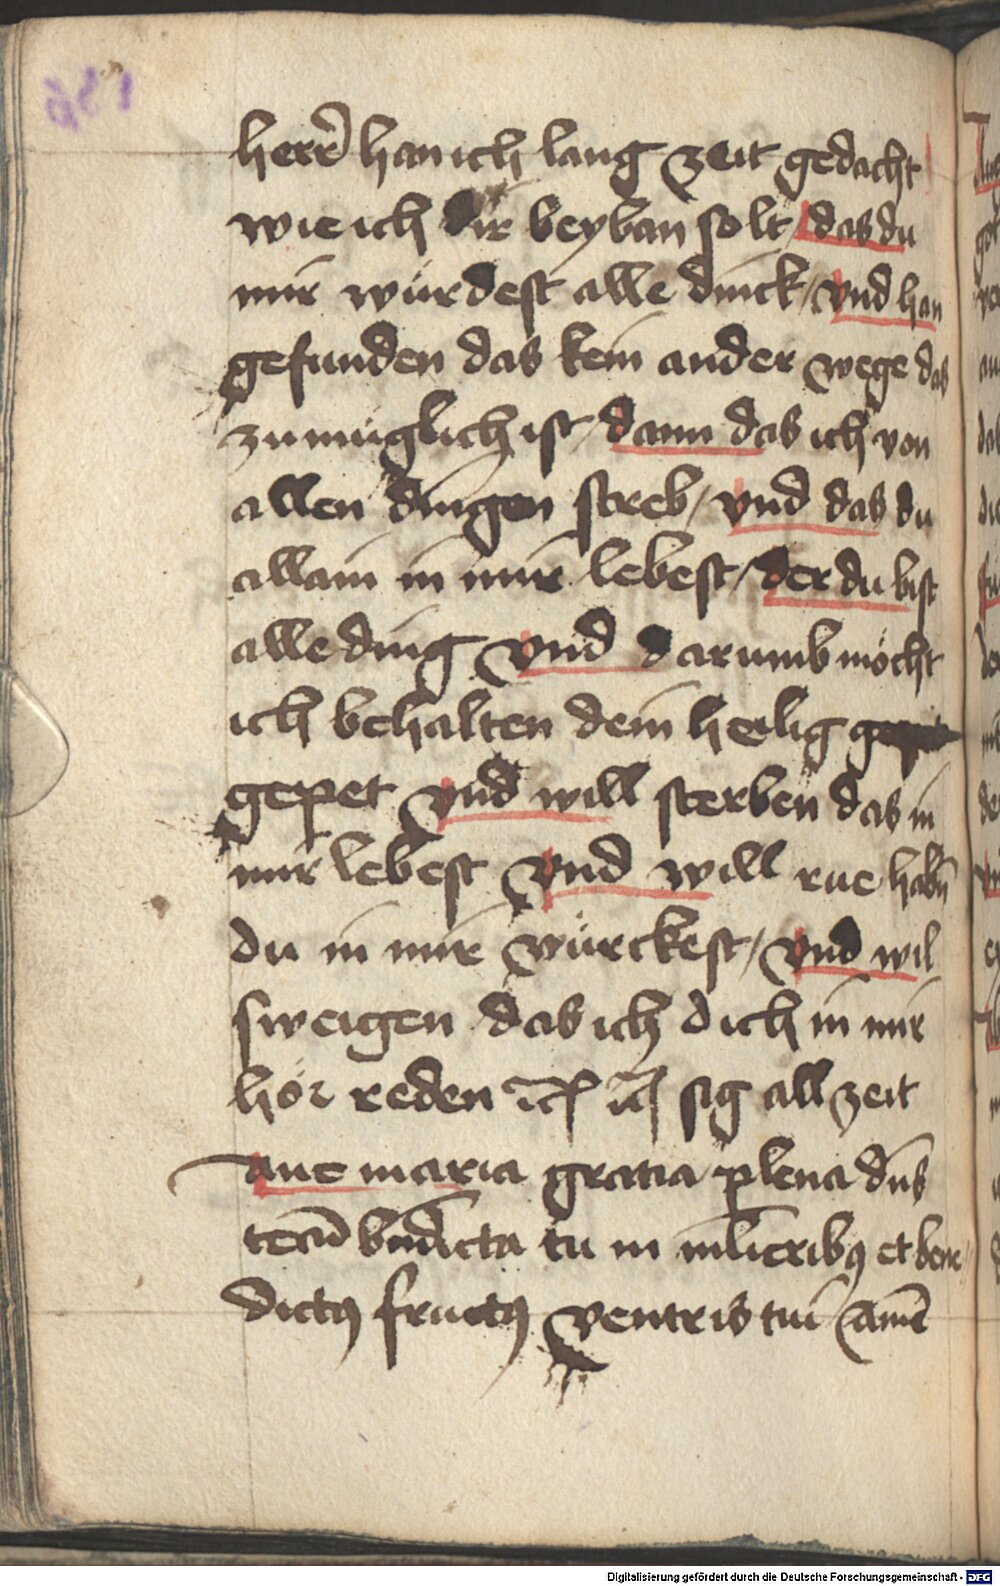 herr̄ han ich lang zeit gedacht
wie ich dir beyban solt / das du
mir würdest alle dinck / vnd han
gefunden das kein ander wege das
zu müglich ist / dann das ich von
allen dingen sterb / vnd das du
allain in mir lebest / der du bist
alle ding vnd darumb möcht
ich behalten dein heilig
gepet vnd will sterben das in
mir lebest vnd will rue habn̄
du in mir würckest / vnd wil
sweigen das ich dich in mir
hör reden sig all zeit
Aue maria gratia plena dn̄s
tecū bn̄dicta tu in mlieribꝰ et bene
dictꝰ fructꝰ ventris tui Amē
Digitalisierung gefördert durch die Deutsche Forschungsgemeinschaft - DFG